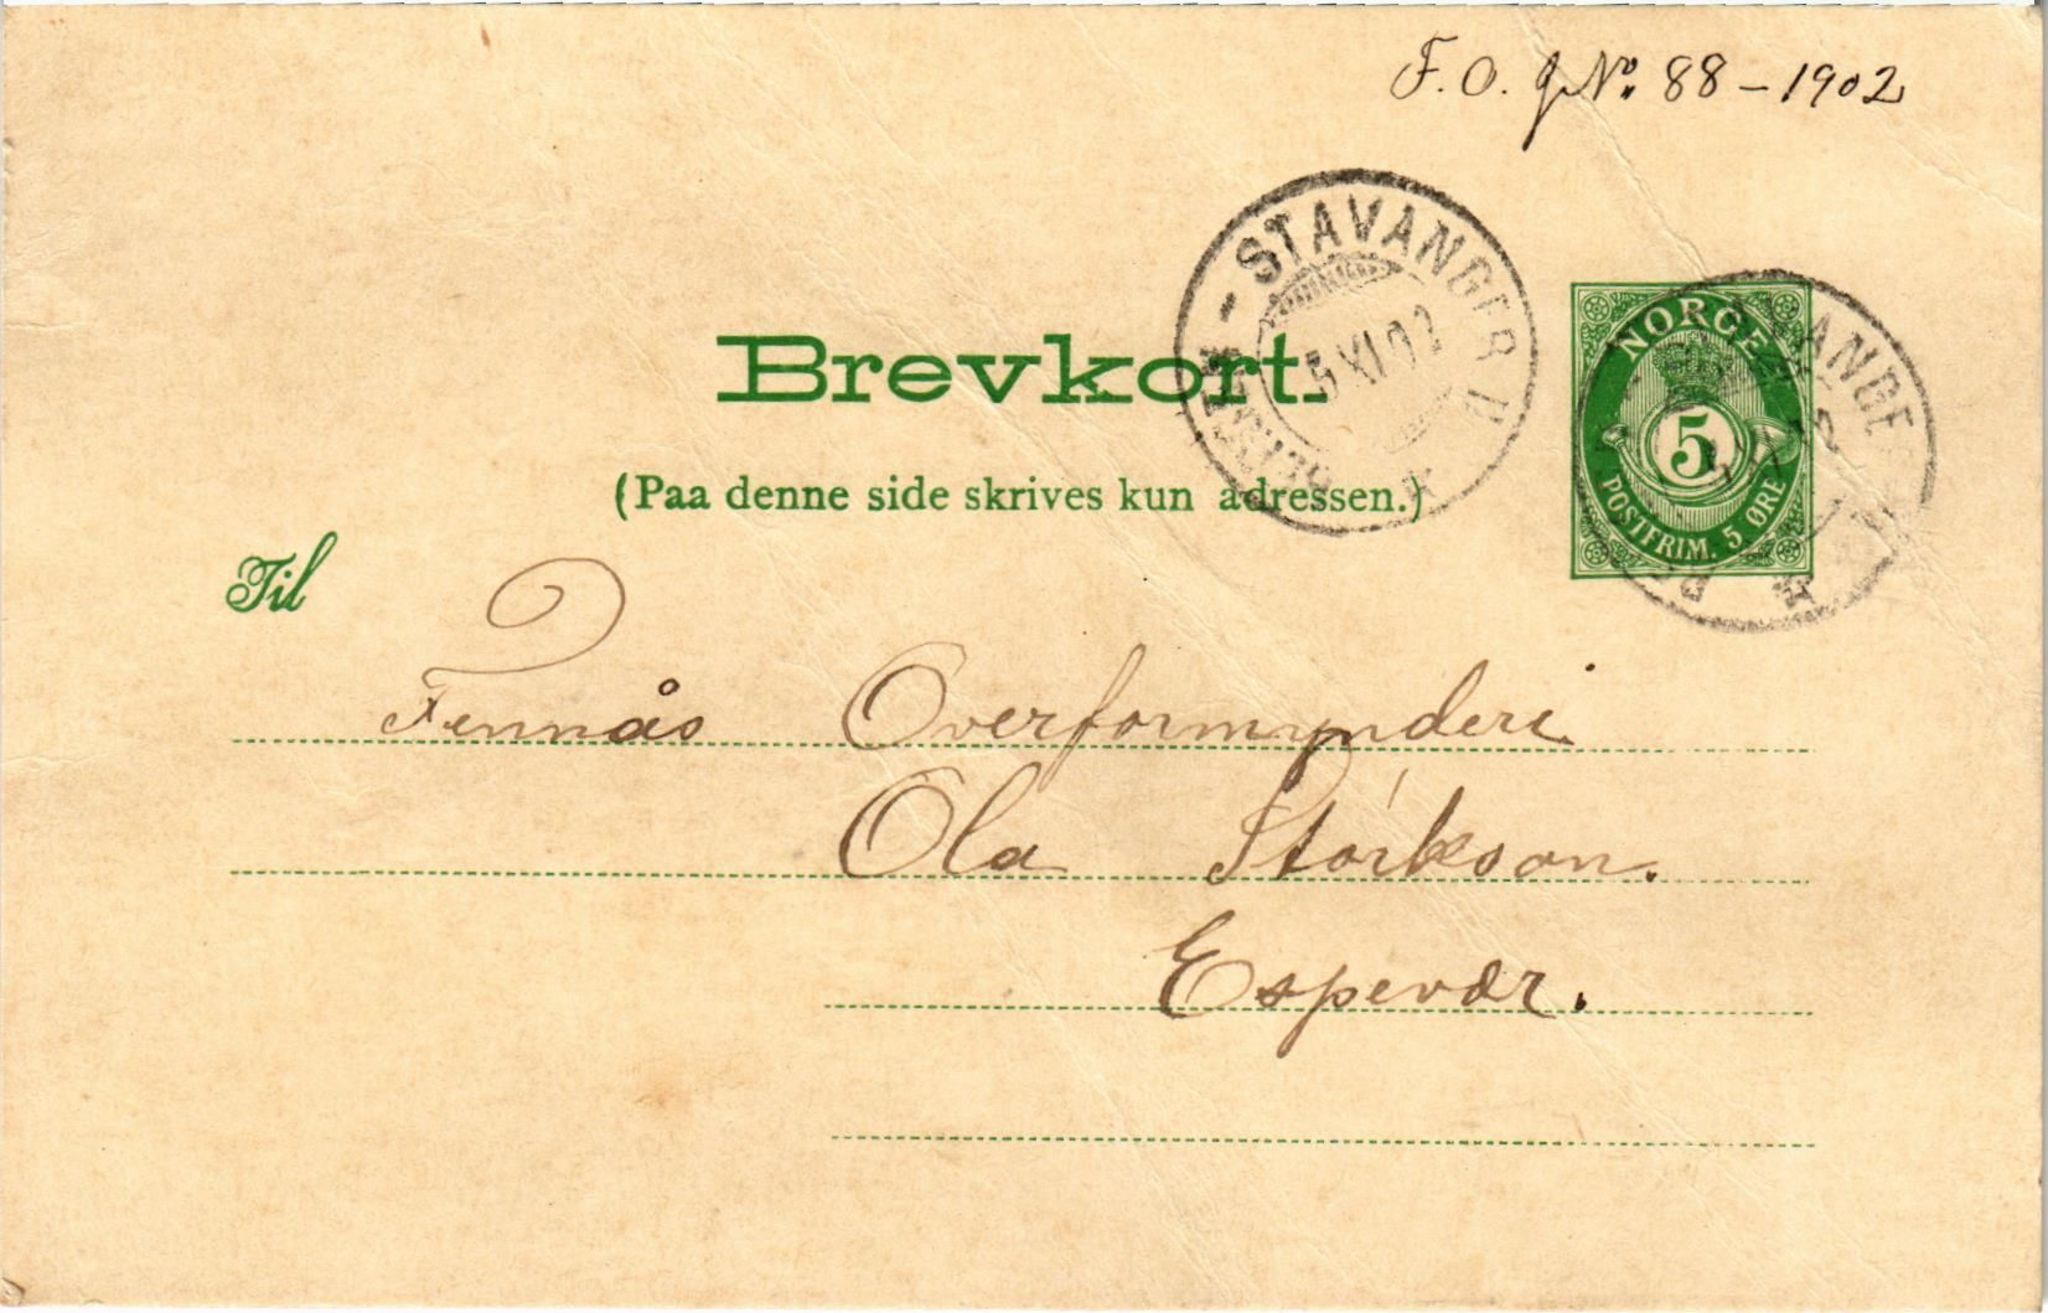 F. O. J No. 88 – 1902
- STAVANGER
5 XI 02
NORGE
5
POSTFRIM. 5 ØRE
AVANGE
Brevkort.
(Paa denne side skrives kun adressen.)
Til
Fennås Overformynderi
Ola Størkson.
Espevær.